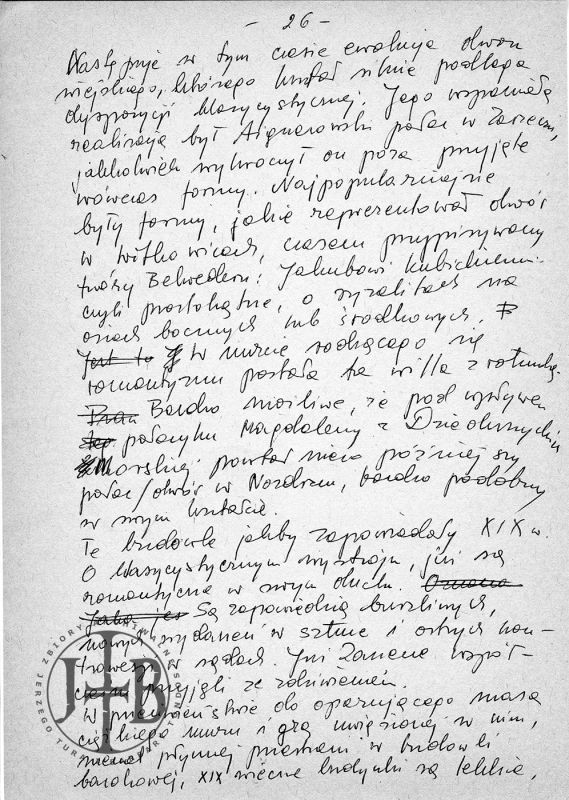 - 26 -
Następuje w tym czasie ewolucja dworu
wiejskiego, którego kształt silnie podlega
dyspozycji klasycystycznej. Jego wspaniałą
realizacją był Aignerowski pałac w Zarzeczu,
jakkolwiek wykroczył on poza przyjęte
wówczas formy. Najpopularniejsze
były formy, jakie reprezentował dwór
w Witkowicach, czasem przypisywany
twórcy Belwederu: Jakubowi Kubickiemu
czyli prostokątne, o ryzalitach na
osiach bocznych lub środkowych.
Jest to W nurcie rodzącego się
romantyzmu powstała ta willa z rotundą.
Bardzo możliwe, że pod wpływem
pałacyku Magdaleny z Dzieduszyckich
Morskiej powstał nieco późniejszy
pałac/dwór w Nozdrzcu, bardzo podobny
w swym kształcie.
Te budowle jakby zapowiadały XIX w.
O klasycystycznym wystroju, już są
romantyczne w swym duchu.
Są zapowiedzią burzliwych,
nowych wydarzeń w sztuce i ostrych kon-
trowersji w sądach. Już Zarzecze współ-
cześni przyjęli ze zdziwieniem.
W przeciwieństwie do operującego masą
ciężkiego muru i grą uwięzionej w nim,
płynnej przestrzeni w budowli
barokowej, XIX wieczne budynki są lekkie,
JERZEGO TUR
ZBIORY
JTB